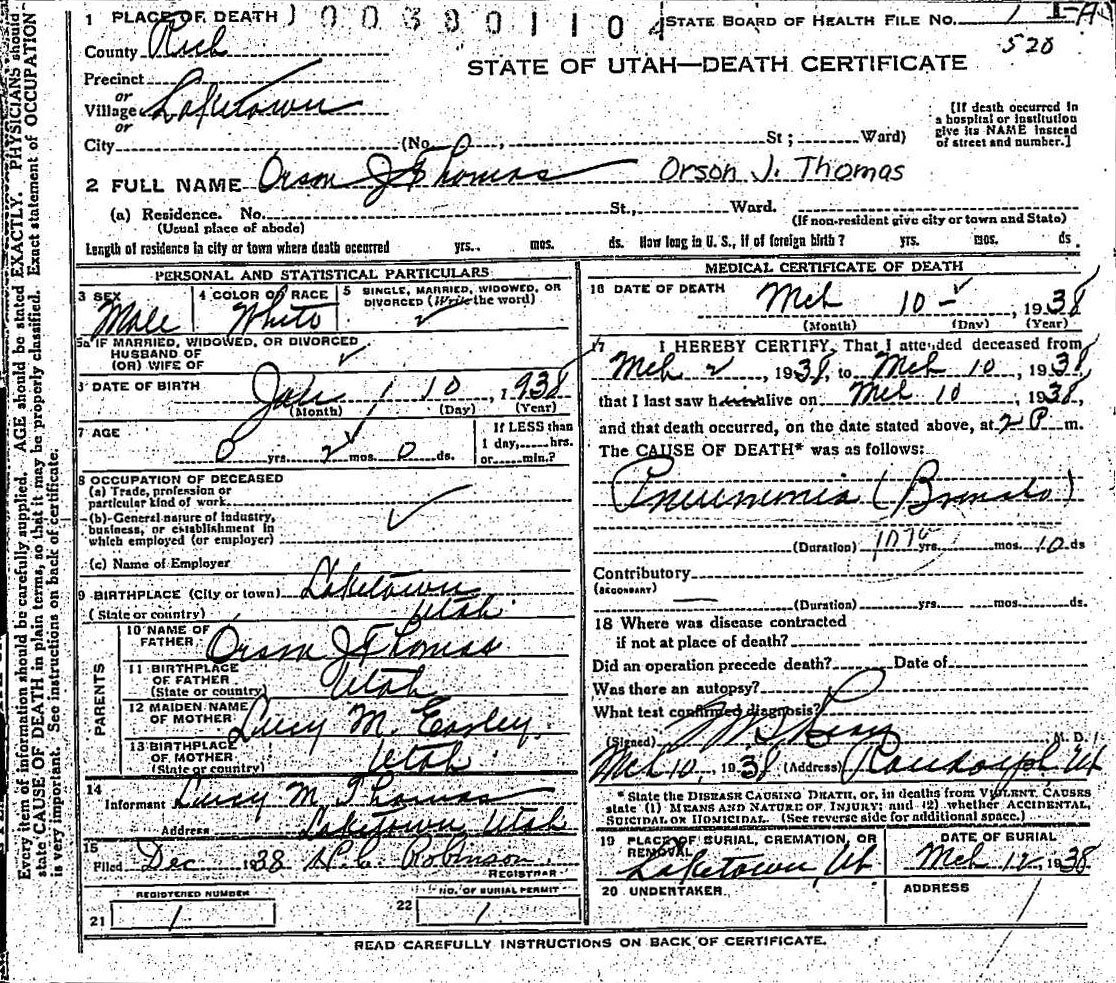 1 PLACE OF DEATH 003801104 STATE BOARD OF HEALTH FILE No. 1 I-A
County Rich 528
STATE OF UTAH—DEATH CERTIFICATE
Precinct
or
Village Laketown
or
City (No. St ; Ward)
[If death occurred in
a hospital or institution
give its NAME instead
of street and number.]
2 FULL NAME Orson J Thomas Orson J. Thomas
(a) Residence. No. St., Ward.
(Usual place of abode) (If non-resident give city or town and State)
Length of residence in city or town where death occurred yrs. mos. ds. How long in U. S., if of foreign birth ? yrs. mos. ds
PERSONAL AND STATISTICAL PARTICULARS
3 SEX 4 COLOR OR RACE 5 SINGLE, MARRIED, WIDOWED, OR
DIVORCED (Write the word)
Male White
5a IF MARRIED, WIDOWED, OR DIVORCED
HUSBAND OF
(OR) WIFE OF
DATE OF BIRTH Jan 10 , 1938
(Month) (Day) (Year)
7 AGE If LESS than
1 day, hrs.
0 yrs. 2 mos. 0 ds. or min.?
8 OCCUPATION OF DECEASED
(a) Trade, profession or
particular kind of work
(b) General nature of industry,
business, or establishment in
which employed (or employer)
(c) Name of Employer
9 BIRTHPLACE (City or town) Laketown
(State or country) Utah
PARENTS
10 NAME OF
FATHER Orson J Thomas
11 BIRTHPLACE
OF FATHER
(State or country) Utah
12 MAIDEN NAME
OF MOTHER Lucy M.
13 BIRTHPLACE
OF MOTHER
(State or country) Utah
14
Informant Lucy M Thomas
Address Laketown Utah
15
Filed Dec 1938 Robinson
REGISTRAR
REGISTERED NUMBER
21 1
NO. OF BURIAL PERMIT
22 1
MEDICAL CERTIFICATE OF DEATH
16 DATE OF DEATH Mch 10 , 1938
(Month) (Day) (Year)
17 I HEREBY CERTIFY, That I attended deceased from
Mch 2 , 1938, to Mch 10 , 1938,
that I last saw h alive on Mch 10 , 1938,
and that death occurred, on the date stated above, at 2 P m.
The CAUSE OF DEATH* was as follows:
Pneumonia (Broncho)
(Duration) yrs. mos. 10 ds
Contributory
(SECONDARY)
(Duration) yrs. mos. ds.
18 Where was disease contracted
if not at place of death?
Did an operation precede death? Date of
Was there an autopsy?
What test confirmed diagnosis?
(Signed) M. D.
Mch 10, 1938 (Address) Randolph Ut
* State the DISEASE CAUSING DEATH, or, in deaths from VIOLENT CAUSES
state (1) MEANS AND NATURE OF INJURY; and (2) whether ACCIDENTAL,
SUICIDAL OR HOMICIDAL. (See reverse side for additional space.)
19 PLACE OF BURIAL, CREMATION, OR
REMOVAL
Laketown, Ut
DATE OF BURIAL
Mch 12, 1938
20 UNDERTAKER
ADDRESS
READ CAREFULLY INSTRUCTIONS ON BACK OF CERTIFICATE.
Every item of information should be carefully supplied. AGE should be stated EXACTLY. PHYSICIANS should
state CAUSE OF DEATH in plain terms, so that it may be properly classified. Exact statement of OCCUPATION
is very important. See instructions on back of certificate.